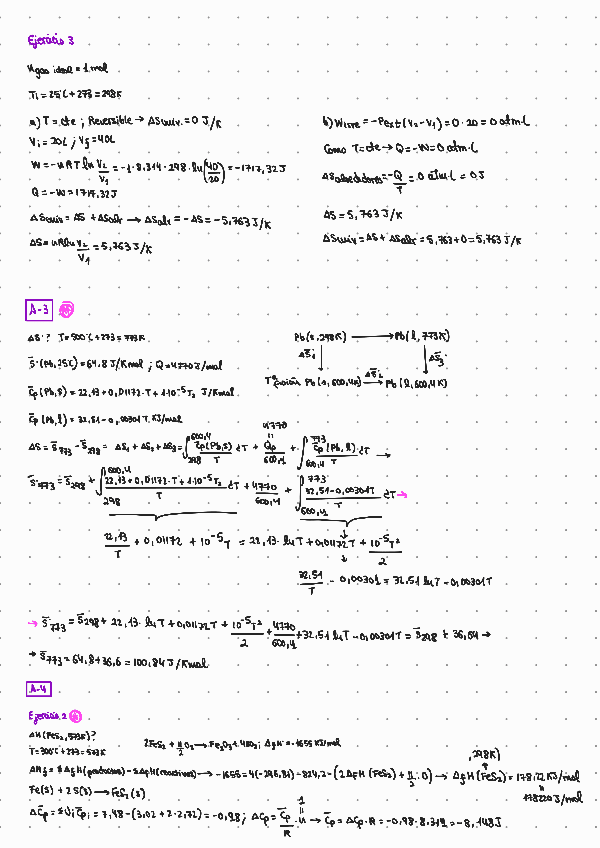 Ejercicio 3
n gas ideal = 1 mol
Ti = 25°C + 273 = 298K
a) T = cte ; Reversible → ΔSuniv. = 0 J/K
Vi = 20L ; Vf = 40L
W = -nRT ln V2/V1 = -1·8.314·298·ln(40/20) = -1717,32J
Q = -W = 1717,32J
ΔSuniv = ΔS + ΔSalr → ΔSalr = -ΔS = -5,763 J/K
ΔS = nRln V2/V1 = 5,763 J/K
b) Wirre = -Pext (V2-V1) = 0·20 = 0 atm·L
Como T=cte → Q = -W = 0 atm·L
ΔSalrededores = -Q/T = 0 atm·L = 0J
ΔS = 5,763 J/K
ΔSuniv = ΔS + ΔSalr = 5,763+0 = 5,763 J/K
A-3
ΔS? T = 500°C + 273 = 773K
S̄°(Pb, 25°C) = 64.8 J/Kmol ; Q = 4770 J/mol
C̄p (Pb, s) = 22,13 + 0,01172·T + 1·10⁻⁵T, J/Kmol
C̄p (Pb, l) = 32,51 - 0,00301T, KJ/mol
Pb(s, 298K) → Pb(l, 773K)
ΔS̄1 ΔS̄2 ΔS̄3
Tª fusión Pb(s, 600,4K) → Pb(l, 600,4K)
ΔS = S̄773 - S̄298 = ΔS1 + ΔS2 + ΔS3 = ∫298^600,4 C̄p(Pb,s)/T dT + Qp/600,4 + ∫600,4^773 C̄p(Pb,l)/T dT →
4770
S̄°773 = S̄298 + ∫298^600,4 22,13 + 0,01172·T + 1·10⁻⁵T/T dT + 4770/600,4 + ∫600,4^773 32,51 - 0,00301T/T dT →
22,13/T + 0,01172 + 10⁻⁵T = 22,13·lnT + 0,01172T + 10⁻⁵T²/2
32,51/T - 0,00301 = 32,51 lnT - 0,00301T
→ S̄773 = S̄298 + 22,13·lnT + 0,01172T + 10⁻⁵T²/2 + 4770/600,4 + 32,51 lnT - 0,00301T = S̄298 + 36,04 →
→ S̄773 = 64,8 + 36,6 = 100,84 J/Kmol
A-4
Ejercicio 2
ΔH(FeS2, 573K)?
T = 300°C + 273 = 573K
2FeS2 + 11/2 O2 → Fe2O3 + 4SO2 ; ΔfH = -1655 KJ/mol
ΔHf = ΣΔfH(productos) - ΣΔfH(reactivos) → -1655 = 4(-296,81) - 824,2 - (2ΔfH (FeS2) + 11/2·0) → ΔfH(FeS2) = 178,22 KJ/mol
, 298K)
178220 J/mol
Fe(s) + 2S(s) → FeS2(s)
ΔC̄p = Σνi C̄pi = 7,48 - (3,02 + 2·2,72) = -0,98 ; ΔCp = C̄p/R · n → C̄p = ΔCp·R = -0,98·8.314 = -8,148J
1